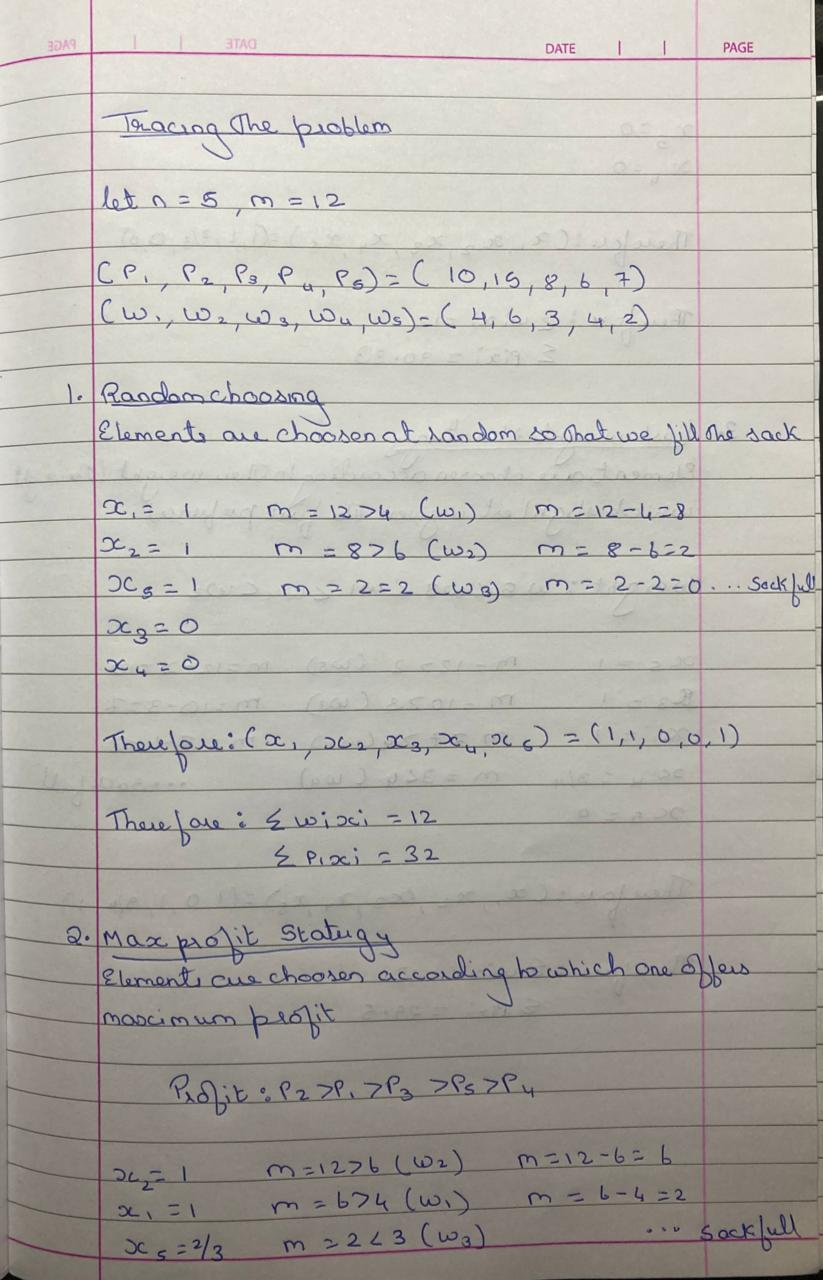 DATE | | PAGE
Tracing the problem
let n = 5 , m = 12
(P1, P2, P3, P4, P5) = ( 10, 15, 8, 6, 7)
(w1, w2, w3, w4, w5) = ( 4, 6, 3, 4, 2)
1. Random choosing
Elements are choosen at random so that we fill the sack
x1 = 1 m = 12 > 4 (w1) m = 12 - 4 = 8
x2 = 1 m = 8 > 6 (w2) m = 8 - 6 = 2
x5 = 1 m = 2 = 2 (w3) m = 2 - 2 = 0 ... sack full
x3 = 0
x4 = 0
Therefore : (x1, x2, x3, x4, x5) = (1, 1, 0, 0, 1)
Therefore : Σ wixi = 12
Σ Pixi = 32
2. Max profit Statugy
Elements are choosen according to which one offers
maximum profit
Profit : P2 > P1 > P3 > P5 > P4
x2 = 1 m = 12 > 6 (w2) m = 12 - 6 = 6
x1 = 1 m = 6 > 4 (w1) m = 6 - 4 = 2
x5 = 2/3 m = 2 < 3 (w3) ... sack full